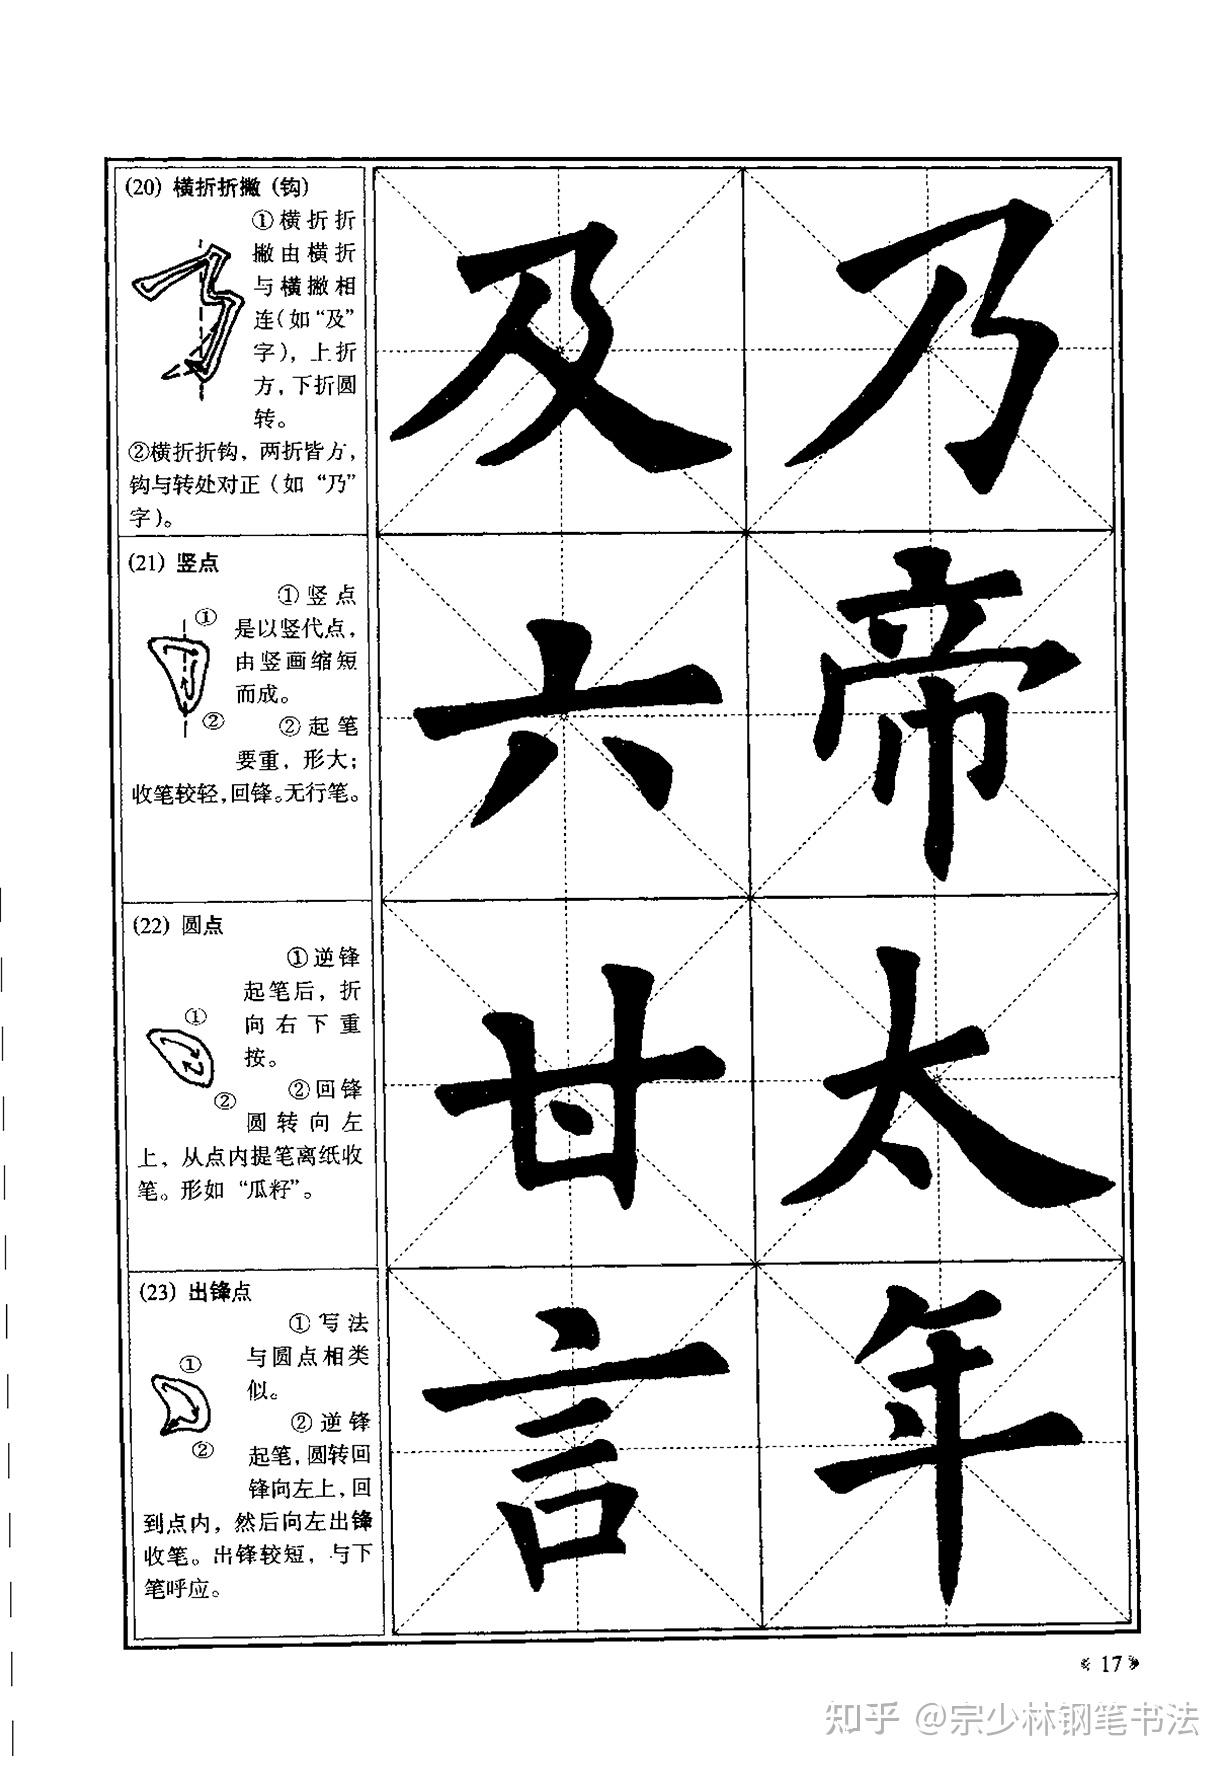 (20) 横折折撇（钩）
①横折折
撇由横折
与横撇相
连（如“及”
字），上折
方，下折圆
转。
②横折折钩，两折皆方，
钩与转处对正（如“乃”
字）。
及 乃
(21) 竖点
①竖点
①
是以竖代点，
由竖画缩短
而成。
②
②起笔
要重，形大；
收笔较轻，回锋。无行笔。
六 帝
(22) 圆点
①逆锋
起笔后，折
①
向右下重
按。
②回锋
②
圆转向左
上，从点内提笔离纸收
笔。形如“瓜籽”。
甘 太
(23) 出锋点
①写法
与圆点相类
①
似。
②逆锋
②
起笔，圆转回
锋向左上，回
到点内，然后向左出锋
收笔。出锋较短，与下
笔呼应。
言 年
17
知乎 @宗少林钢笔书法